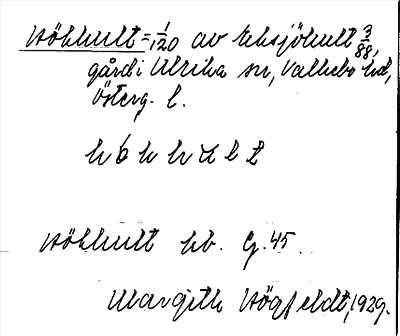 Hökhult = 1/120 av Eksjöhult 3/88,
gård i Ulrika sn, Valkebo hd,
Österg. l.
hökhult
Hökhult hb. G. 45.
Margith Högfeldt, 1929.